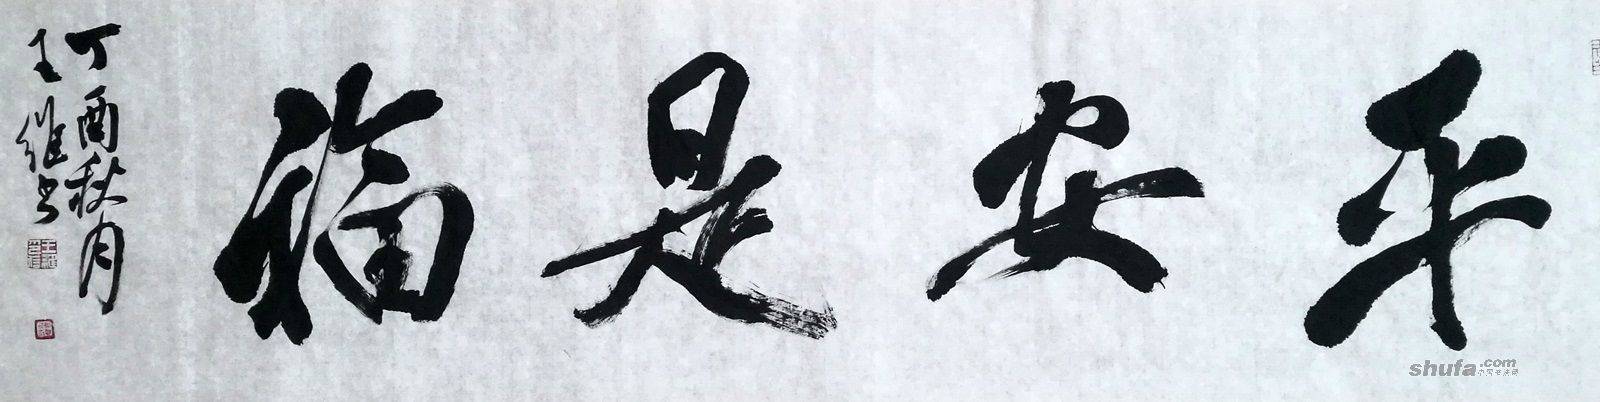 平安是福
丁酉秋月
王继书
shufa.com